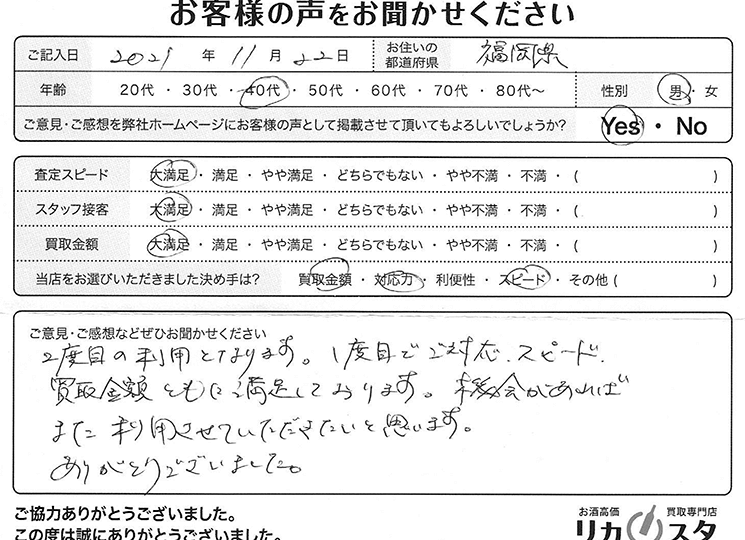 お客様の声をお聞かせください
ご記入日 2021 年 11 月 22 日 お住いの都道府県 福岡県
年齢 20代 ・ 30代 ・ 40代 ・ 50代 ・ 60代 ・ 70代 ・ 80代〜 性別 男 ・ 女
ご意見・ご感想を弊社ホームページにお客様の声として掲載させて頂いてもよろしいでしょうか? Yes ・ No
査定スピード 大満足 ・ 満足 ・ やや満足 ・ どちらでもない ・ やや不満 ・ 不満 ・ ( )
スタッフ接客 大満足 ・ 満足 ・ やや満足 ・ どちらでもない ・ やや不満 ・ 不満 ・ ( )
買取金額 大満足 ・ 満足 ・ やや満足 ・ どちらでもない ・ やや不満 ・ 不満 ・ ( )
当店をお選びいただきました決め手は? 買取金額 ・ 対応力 ・ 利便性 ・ スピード ・ その他 ( )
ご意見・ご感想などぜひお聞かせください
2度目の利用となります。1度目でご対応、スピード、
買取金額ともに満足しております。機会があれば
また利用させていただきたいと思います。
ありがとうございました。
ご協力ありがとうございました。
この度は誠にありがとうございました。
お酒高価 買取専門店
リカスタ